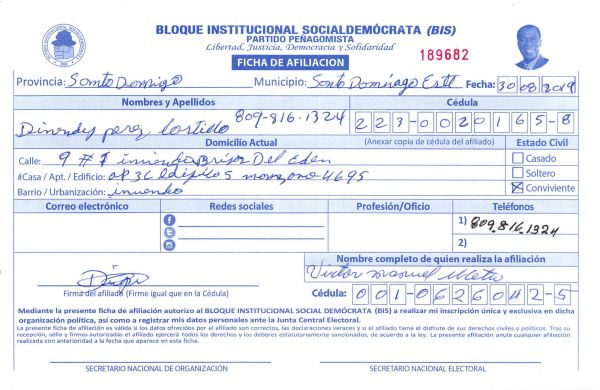 BLOQUE INSTITUCIONAL SOCIALDEMÓCRATA (BIS)
PARTIDO PEÑAGOMISTA
Libertad, Justicia, Democracia y Solidaridad
FICHA DE AFILIACION
189682
Provincia: Santo Domigo Municipio: Santo Domingo Este Fecha: 30 08 2019
Nombres y Apellidos Cédula
809-816-1324
Dinendy perez 223-0020165-8
Domicilio Actual (Anexar copia de cédula del afiliado) Estado Civil
Calle: 9 # 1 Del Eden
Casado
#Casa / Apt. / Edificio: 5 4695
Soltero
Barrio / Urbanización:
Conviviente
Correo electrónico Redes sociales Profesión/Oficio Teléfonos
1) 809.816.1324
2)
Nombre completo de quien realiza la afiliación
Victor manuel
Firma del afiliado (Firme igual que en la Cédula)
Cédula: 001-0626042-5
Mediante la presente ficha de afiliación autorizo al BLOQUE INSTITUCIONAL SOCIAL DEMÓCRATA (BIS) a realizar mi inscripción única y exclusiva en dicha
organización política, así como a registrar mis datos personales ante la Junta Central Electoral.
La presente ficha de afiliación es válida si los datos ofrecidos por el afiliado son correctos, las declaraciones veraces y si el afiliado tiene el disfrute de sus derechos civiles y políticos. Tras su
recepción, sello y firmos autorizadas el afiliado ejercerá todos los derechos y los deberes estatutariamente sancionados, de acuerdo a la ley. La presente afiliación anula cualquier afiliación
realizada con anterioridad a la fecha que aparece en esta ficha.
SECRETARIO NACIONAL DE ORGANIZACIÓN SECRETARIO NACIONAL ELECTORAL